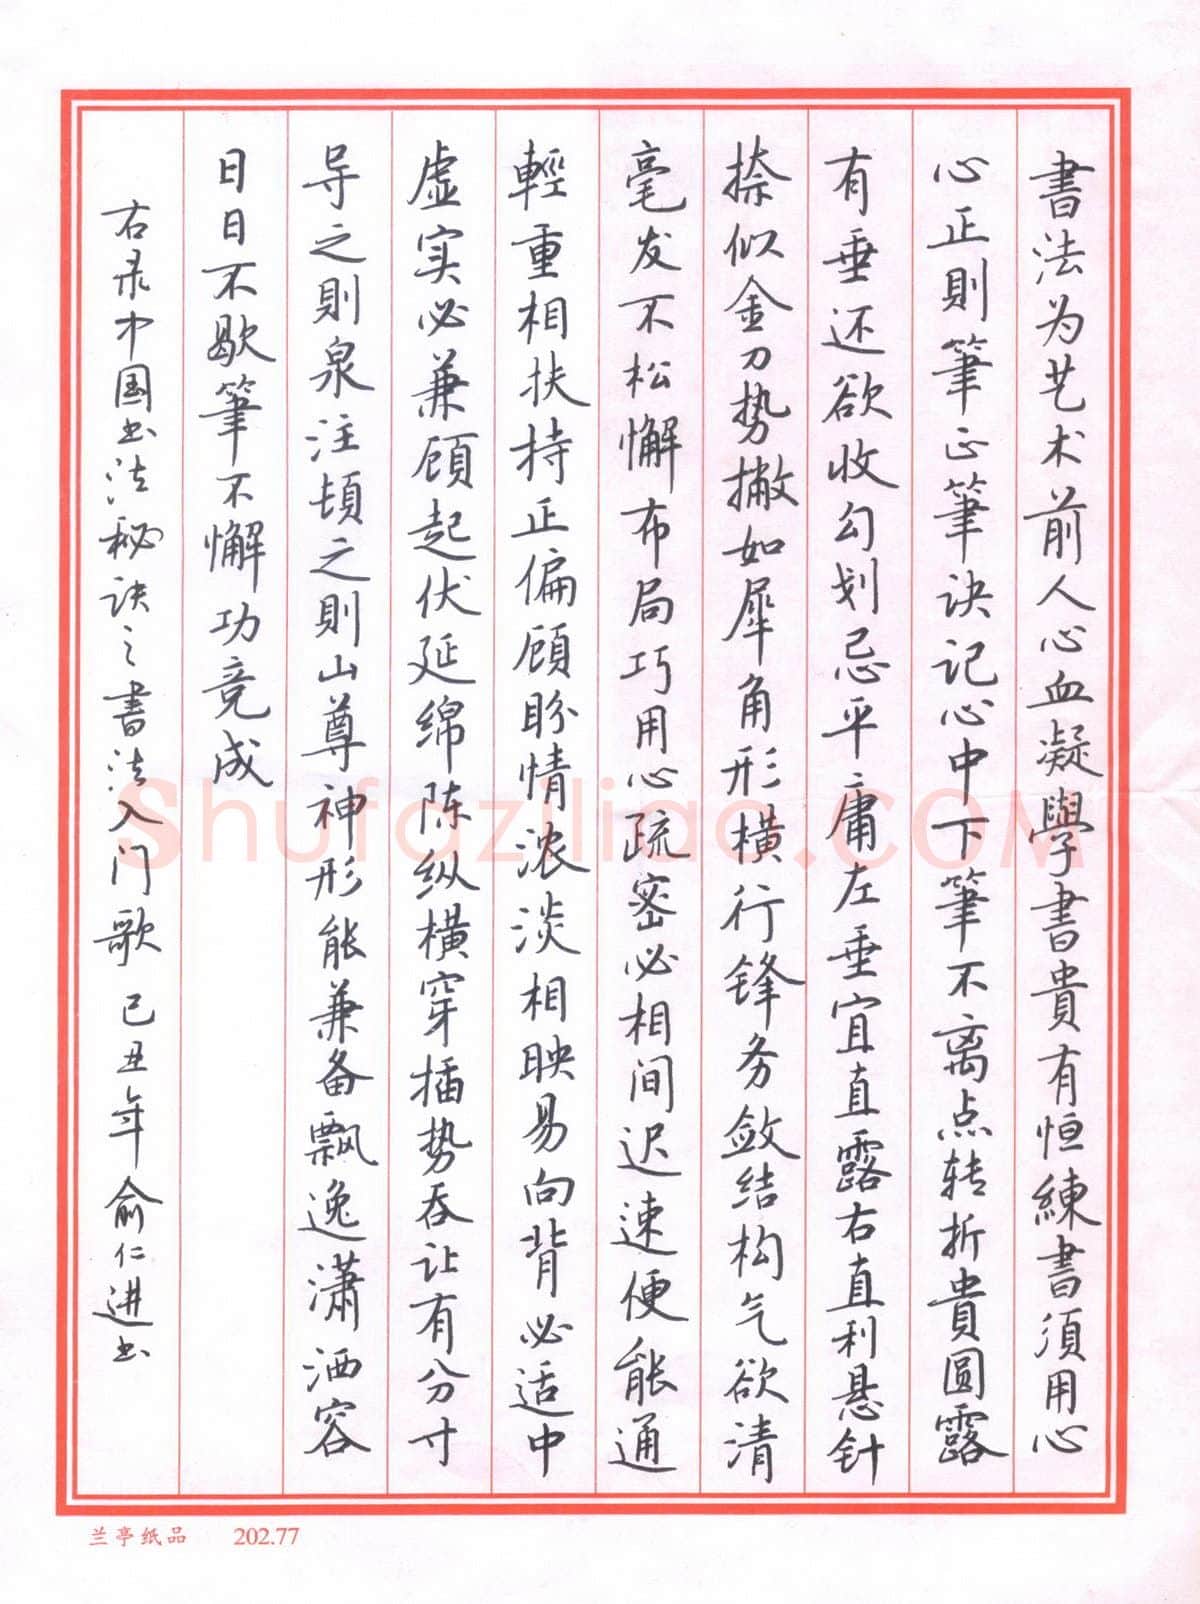 書法为艺术前人心血凝學書貴有恒練書須用心
心正則筆正筆诀记心中下筆不离点转折貴圆露
有垂还欲收勾划忌平庸左垂宜直露右直利悬针
捺似金刀势撇如犀角形横行锋务敛结构气欲清
毫发不松懈布局巧用心疏密必相间迟速便能通
輕重相扶持正偏顾盼情浓淡相映易向背必适中
虚实必兼顾起伏延绵陈纵横穿插势吞让有分寸
导之則泉注頓之則山尊神形能兼备飘逸潇洒容
日日不歇筆不懈功竞成
右录中国书法秘诀之書法入门歌 己丑年 俞仁进书
Shufaziliao.COM
兰亭纸品 202.77